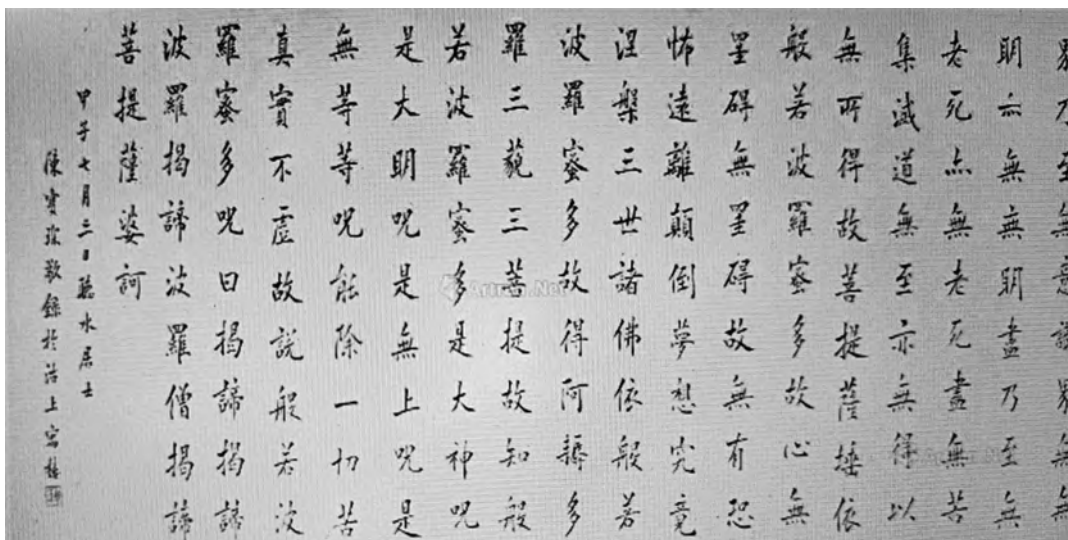 界乃至無意識界無無
明亦無無明盡乃至無
老死亦無老死盡無苦
集滅道無至亦無得以
無所得故菩提薩埵依
般若波羅蜜多故心無
罣碍無罣碍故無有恐
怖遠離顛倒夢想究竟
涅槃三世諸佛依般若
波羅蜜多故得阿耨多
羅三藐三菩提故知般
若波羅蜜多是大神咒
是大明咒是無上咒是
無等等咒能除一切苦
真實不虛故說般若波
羅蜜多咒曰揭諦揭諦
波羅揭諦波羅僧揭諦
菩提薩婆訶
甲子七月三日聽水居士
陳寶琛敬錄於沽上寓樓
Artron.Net